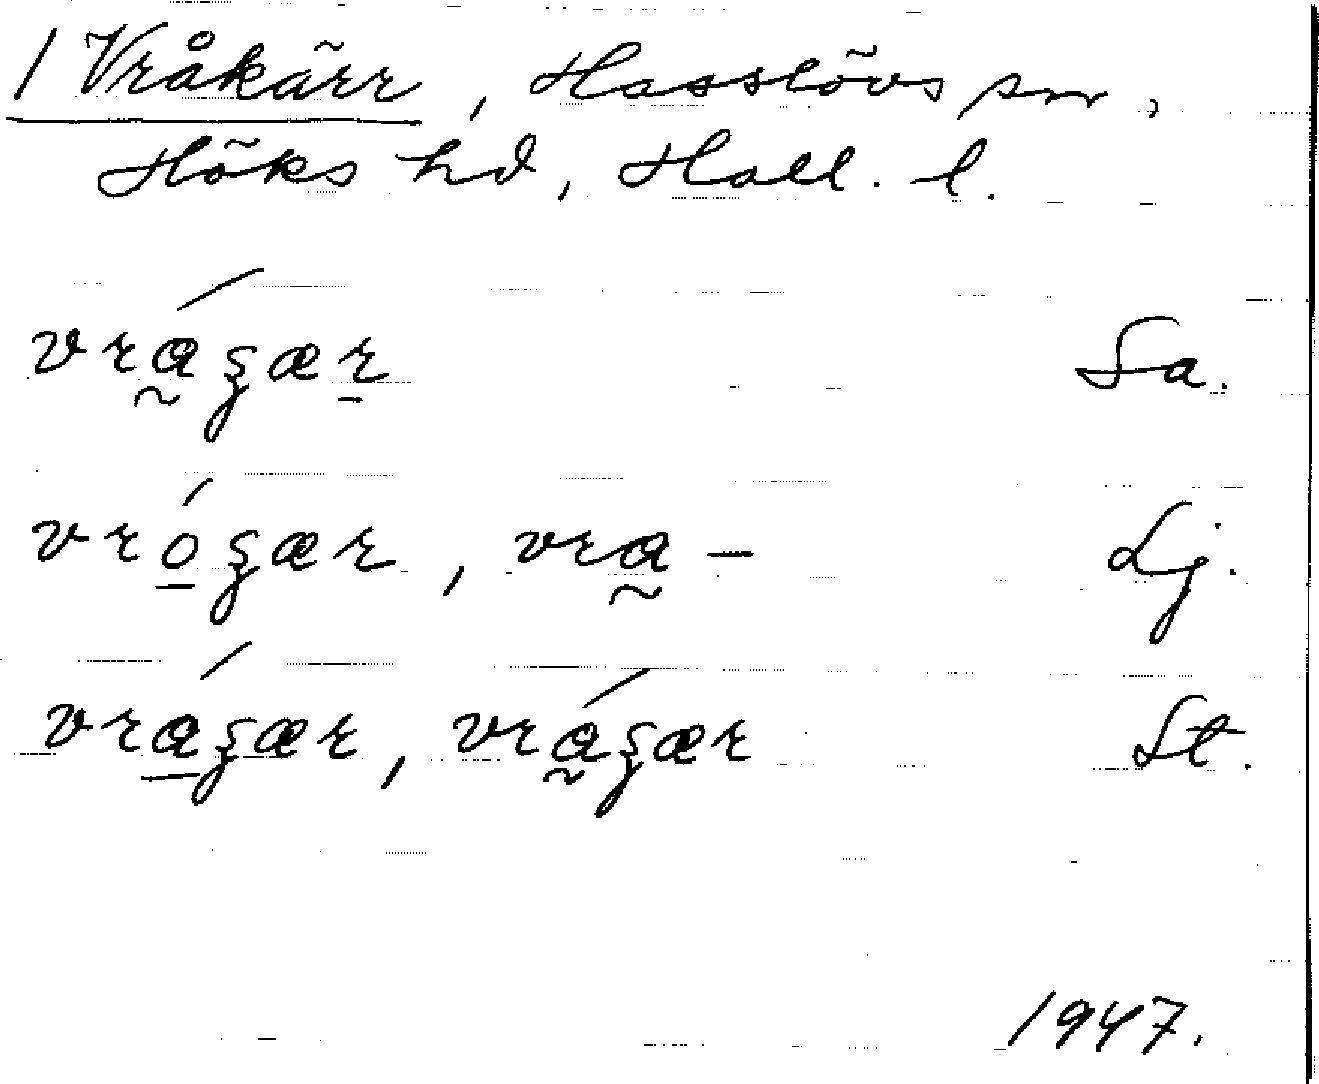 1 Vråkärr, Hasslövs sn,
Höks hd, Hall. l.
vrá̰ʒær̠ Sa.
vró̠ʒær, vra̰ — Lj.
vrá̠ʒær, vrá̰ʒær St.
1947.